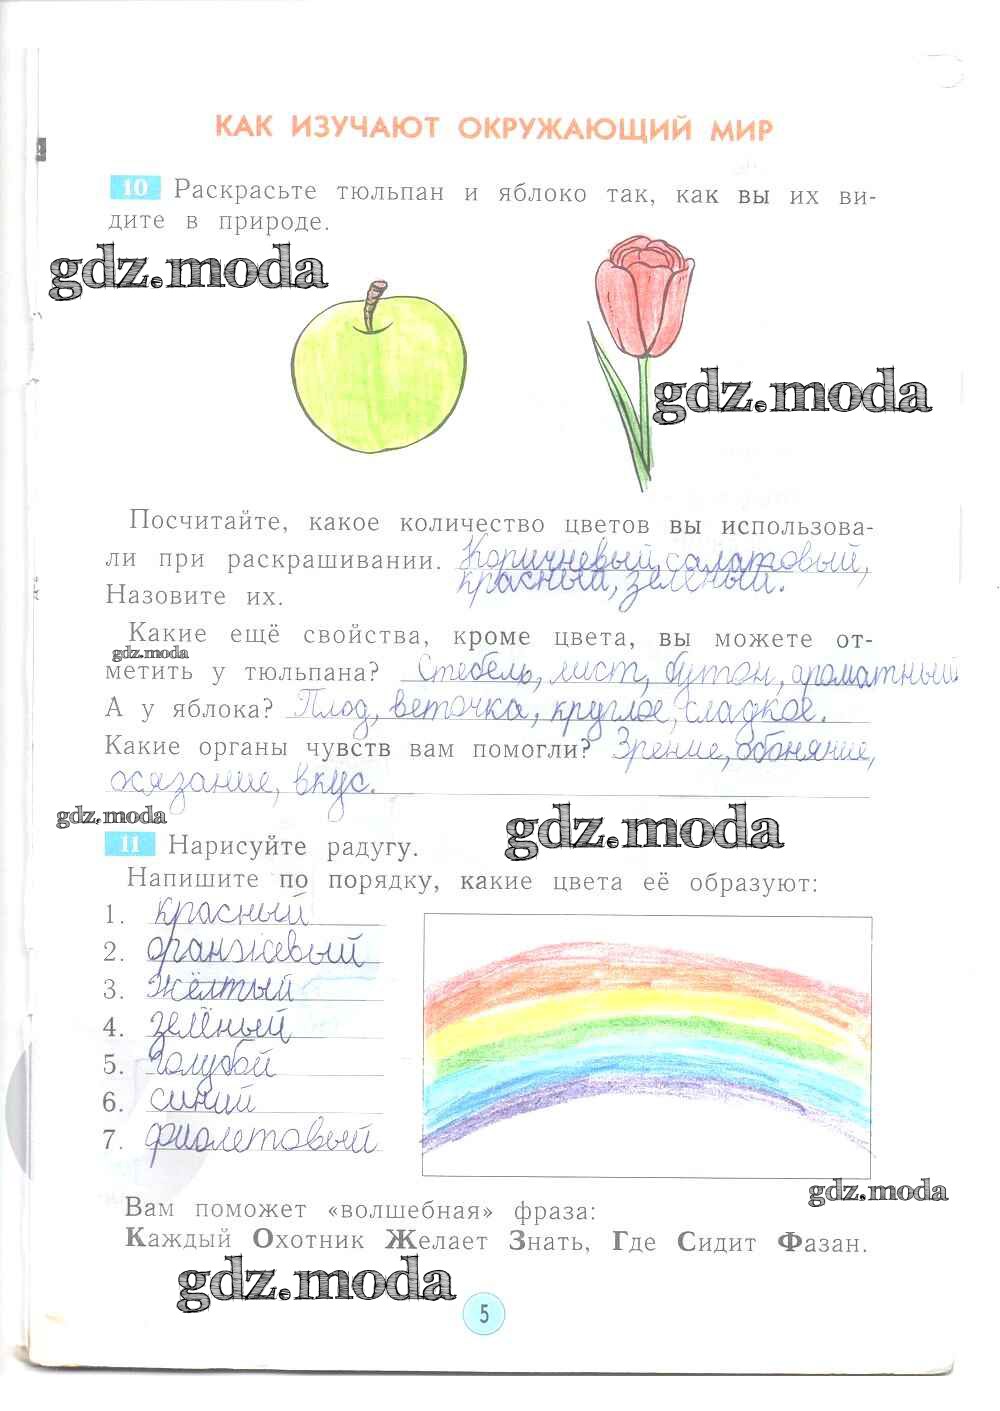 КАК ИЗУЧАЮТ ОКРУЖАЮЩИЙ МИР
10 Раскрасьте тюльпан и яблоко так, как вы их ви-
дите в природе.
gdz.moda
gdz.moda
Посчитайте, какое количество цветов вы использова-
ли при раскрашивании. Коричневый, салатовый,
Назовите их. красный, зелёный.
Какие ещё свойства, кроме цвета, вы можете от-
gdz.moda
метить у тюльпана? Стебель, лист, бутон, ароматный
А у яблока? Плод, веточка, круглое, сладкое.
Какие органы чувств вам помогли? Зрение, обоняние,
осязание, вкус.
gdz.moda
gdz.moda
11 Нарисуйте радугу.
Напишите по порядку, какие цвета её образуют:
1. красный
2. оранжевый
3. жёлтый
4. зелёный
5. голубой
6. синий
7. фиолетовый
gdz.moda
Вам поможет «волшебная» фраза:
Каждый Охотник Желает Знать, Где Сидит Фазан.
gdz.moda
5